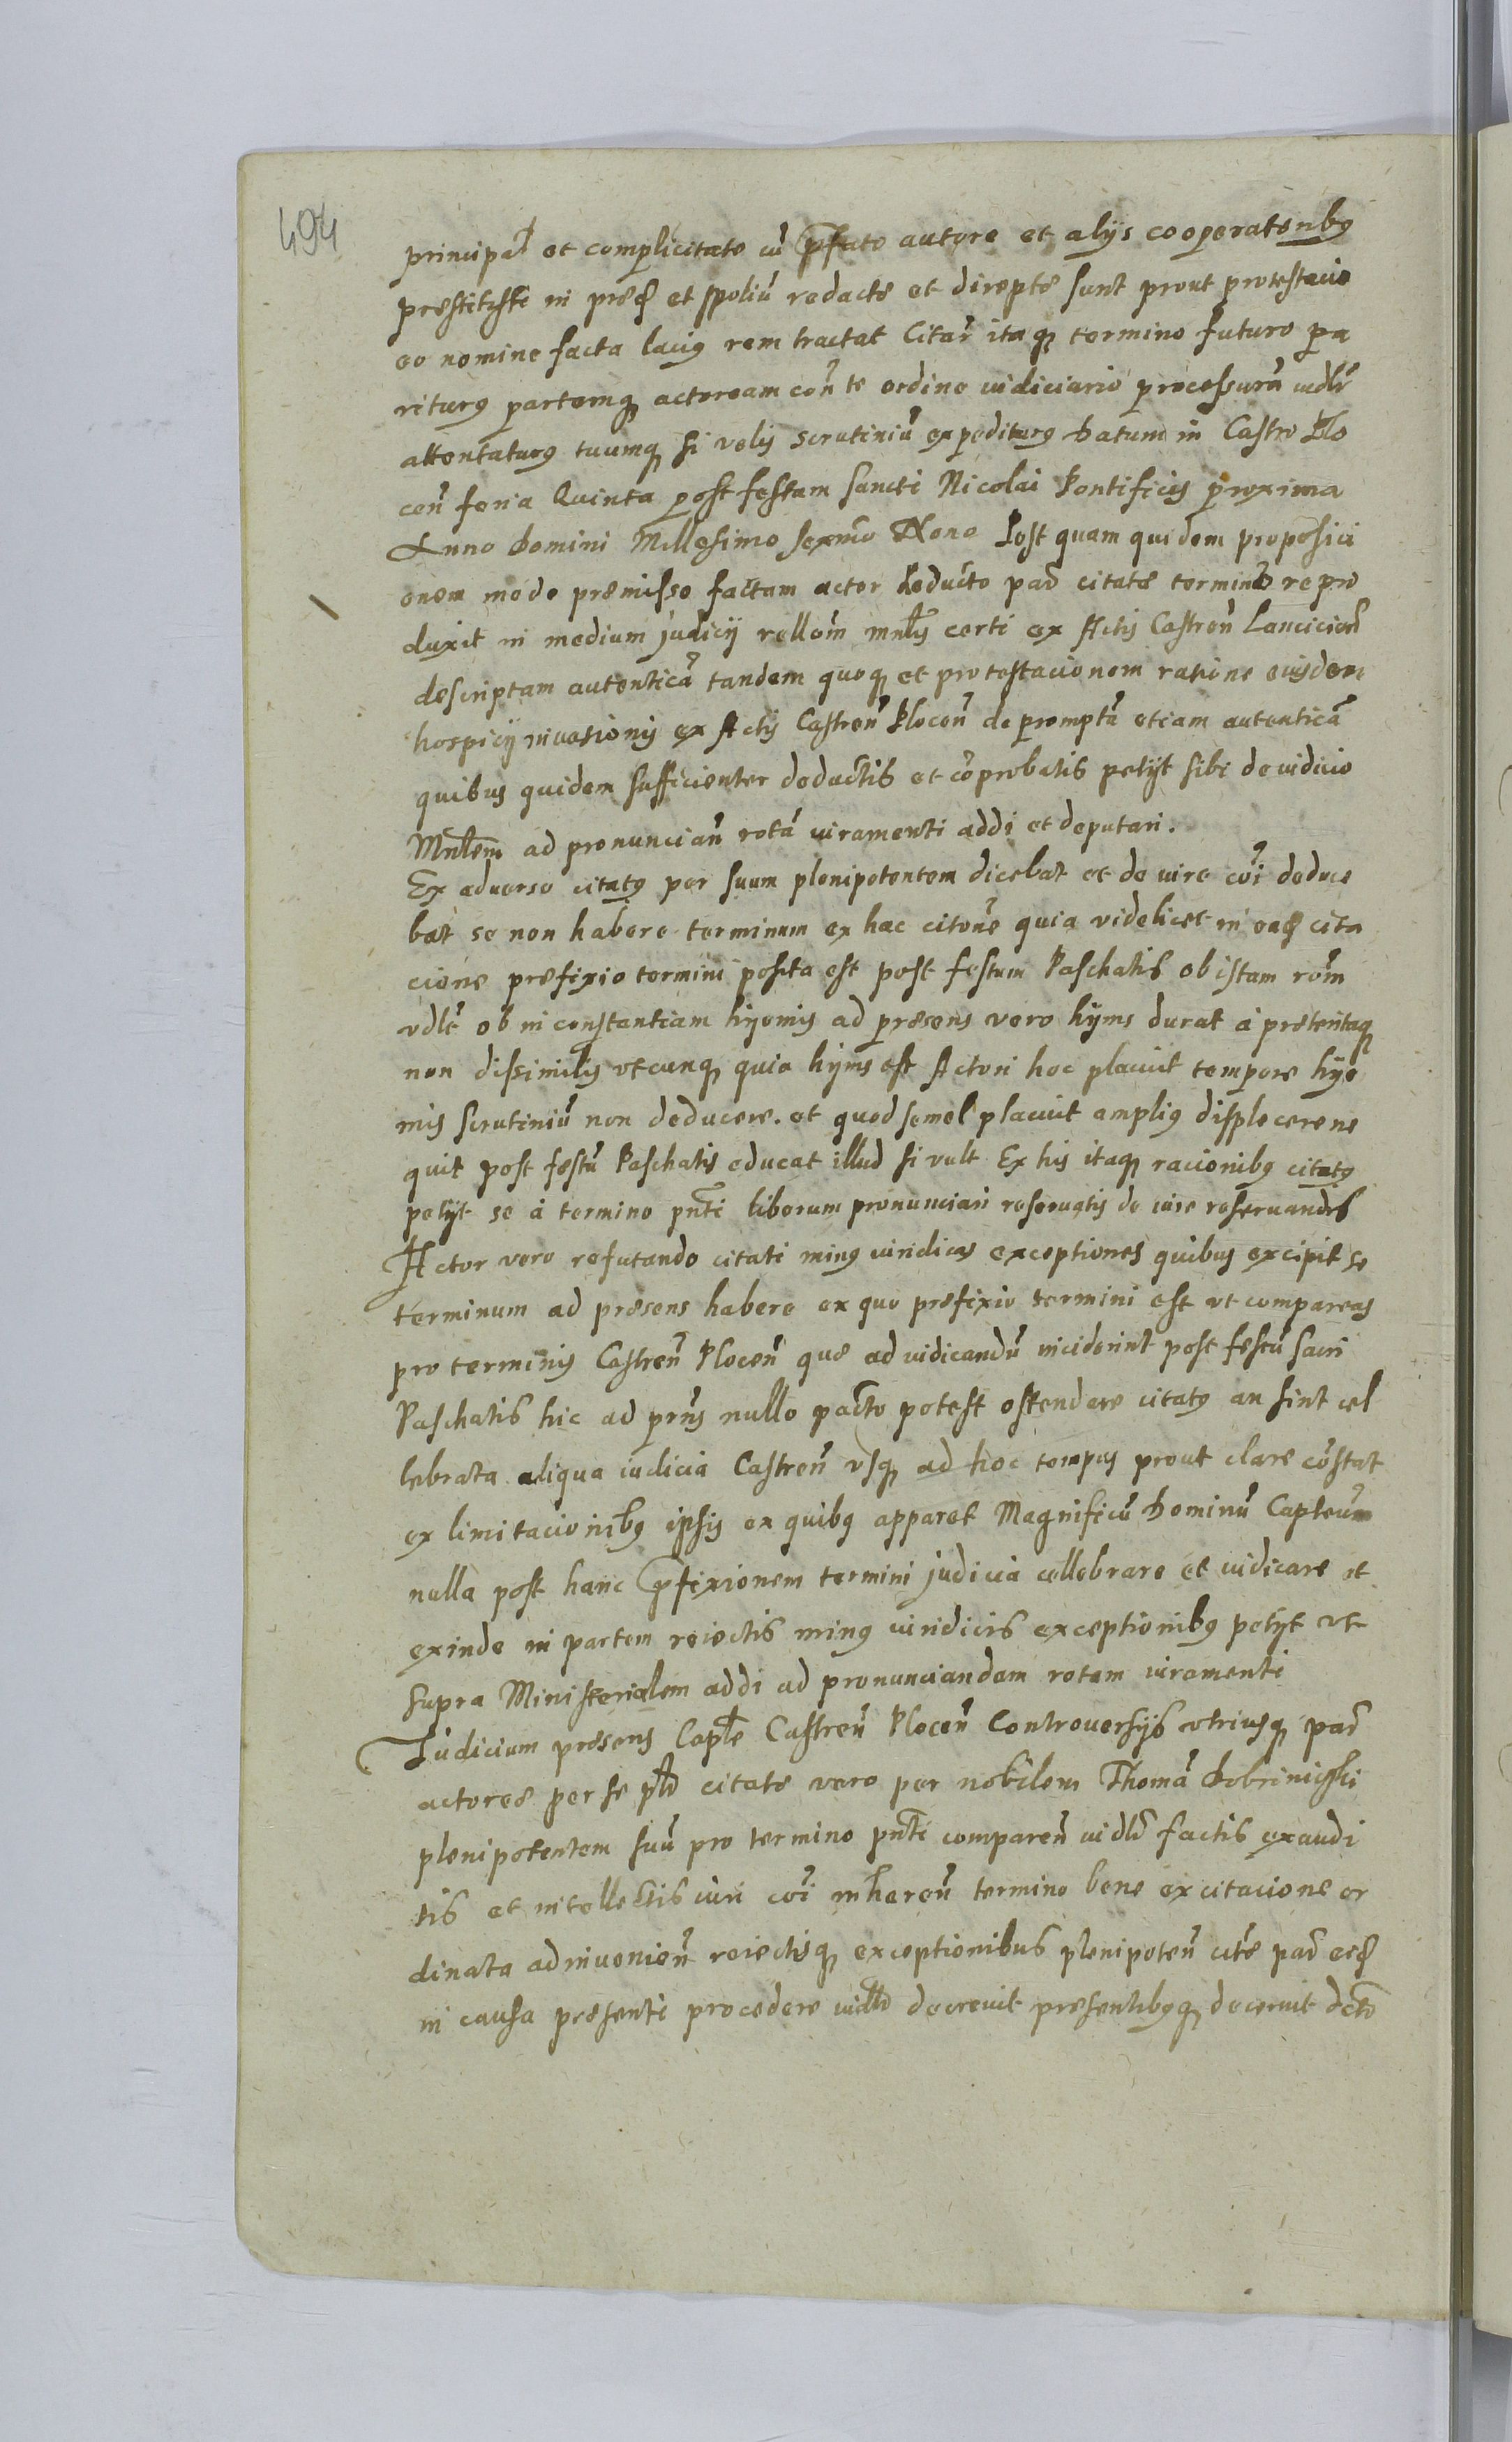 494
principal et complicitate cũ p̃fato autore et alijs cooperatoribꝯ
prestitisti in præd et spoliũ redacte et direpte sunt prout protestacio
eo nomine facta laciꝯ rem tractat Citar̃ itaqꝫ termino futuro pa
riturꝯ partemqꝫ actoream con̄ te ordine iudiciario processurã iudlr̃
attentaturꝯ tuumqꝫ si velis scrutiniũ expediturꝯ Datum in Castro Plo
ceñ feria Quinta post festum Sancti Nicolai Pontificis proxima
Anno Domini Millesimo sexm̃o Nono Post quam quidem proposici
onem modo premisso factam actor deducto par̃ citate termino repro
duxit in medium judicij rellom̃ mnl̃is certi ex Actis Castreñ Lancicieñ
descriptam autenticã tandem quoqꝫ et protestacionem ratione eiusdem
hospicij invasionis ex Actis Castreñ Ploceñ depromptã etiam autenticã
quibus quidem sufficienter deductis et cõprobatis petijt sibi de iudicio
Mnl̃em ad pronunciañ rotã iuramenti addi et deputari.
Ex aduerso citatꝯ per suum plenipotentem dicebat et de iure coĩ deduce
bat se non habere terminum ex hac citoñe quia videlicet in ead cita
cione prefixio termini posita est post festum Paschatis ob istam rom̃
vdlt ob inconstantiam hyemis ad præsens vero hijms durat à preteritaqꝫ
non dissimilis vtcunqꝫ quia hijms est Actori hoc placuit tempore hye
mis scrutiniũ non deducere. et quod semel placuit ampliꝯ displecere ne
quit post festũ Paschatis educat illud si vult Ex his itaqꝫ racionibꝯ citatꝯ
petijt se à termino pñti liberum pronunciari reseruatis de iure reseruandis
Actor vero refutando citati minꝯ iuridicas exceptiones quibus excipit se
terminum ad præsens habere ex quo prefixio termini est vt compareas
pro terminis Castreñ Ploceñ que ad iudicandũ inciderint post festũ sacri
Paschatis hic ad prñs nullo pacto potest ostendere citatꝯ an sint cel
lebrata aliqua iudicia Castreñ vsqꝫ ad hoc tempus prout clare cõstat
ex limitacionibꝯ ipsis ex quibꝯ apparet Magnificũ Dominũ Capteum
nulla post hanc p̃fixionem termini judicia cellebrare et iudicare et
exinde in partem reiectis minꝯ iuridicis exceptionibꝯ petijt vt
supra Ministerialem addi ad pronunciandam rotam iuramenti
Judicium præsens Capl̃e Castreñ Ploceñ Controuersijs vtriusqꝫ par̃
actoree per se pl̃r citate vero per nobilem Thomã Dobrinieski
plenipotentem suũ pro termino pñti compareñ iudlr̃ factis exaudi
tis et intellectis iuri coĩ inhereñ termino bene ex citacione or
dinata adinuenieñ reiectisqꝫ exceptionibus plenipoteñ cite par̃ eid
in causa presenti procedere iudlr̃ decreuit presentibꝯqꝫ decernit dcto